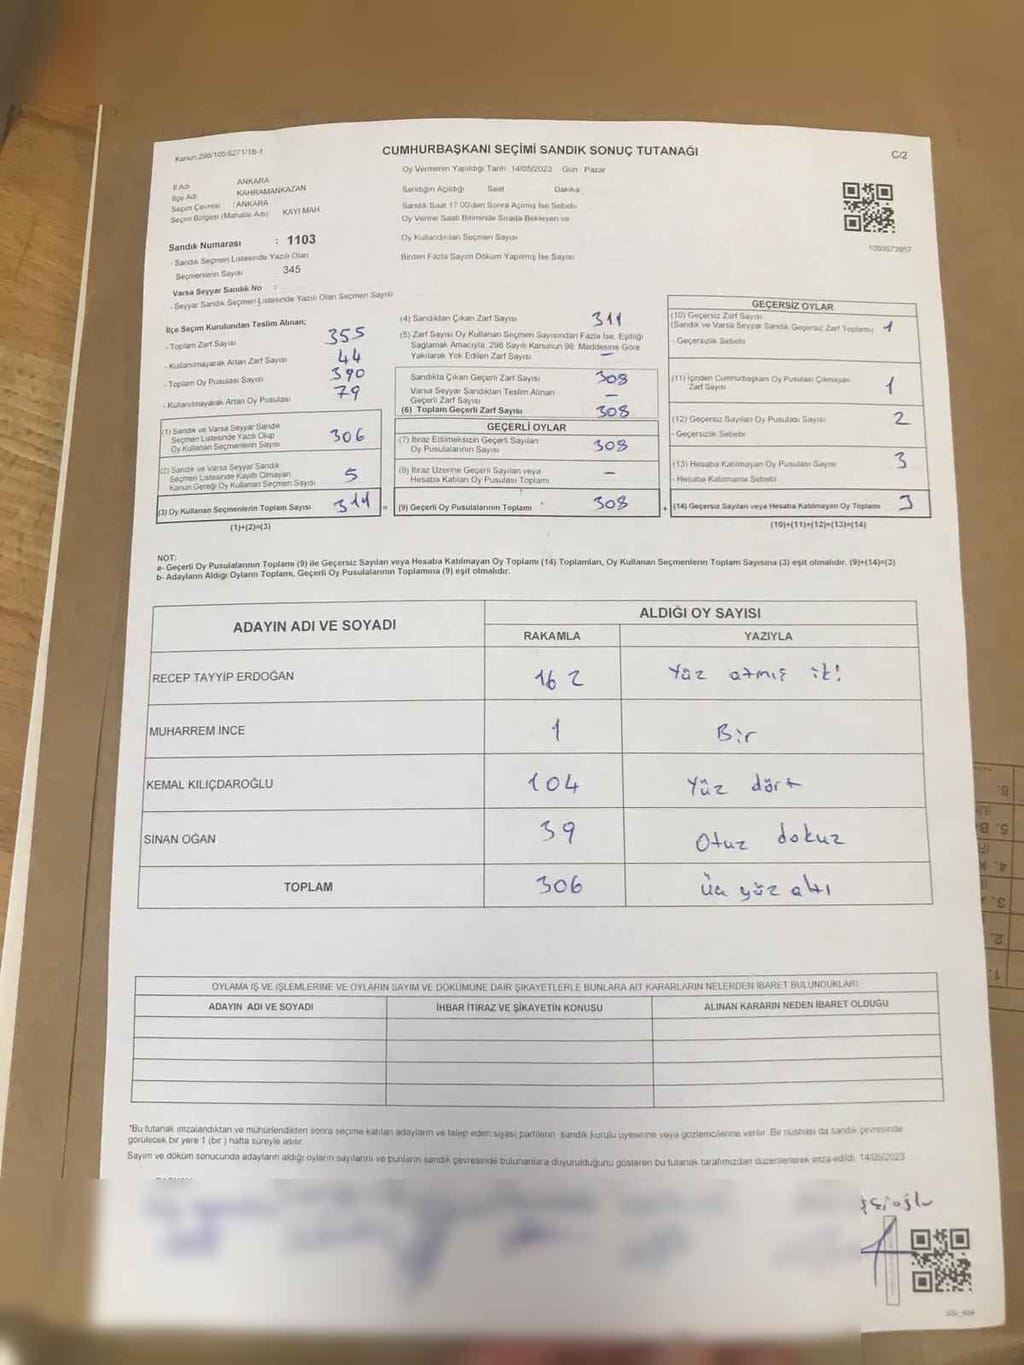 Kanun:298/105:6271/18-1
CUMHURBAŞKANI SEÇİMİ SANDIK SONUÇ TUTANAĞI
C/2
Oy Vermenin Yapıldığı Tarih: 14/05/2023 Gün: Pazar
İl Adı ANKARA
İlçe Adı KAHRAMANKAZAN
Seçim Çevresi :ANKARA
Seçim Bölgesi (Mahalle Adı) KAYI MAH.
Sandığın Açıldığı Saat Dakika
Sandık Saat 17:00'den Sonra Açılmış İse Sebebi
Oy Verme Saati Bitiminde Sırada Bekleyen ve
Oy Kullandırılan Seçmen Sayısı
Birden Fazla Sayım Döküm Yapılmış İse Sayısı
Sandık Numarası : 1103
- Sandık Seçmen Listesinde Yazılı Olan
Seçmenlerin Sayısı 345
Varsa Seyyar Sandık No :
- Seyyar Sandık Seçmen Listesinde Yazılı Olan Seçmen Sayısı
İlçe Seçim Kurulundan Teslim Alınan;
- Toplam Zarf Sayısı 355
- Kullanılmayarak Artan Zarf Sayısı 44
- Toplam Oy Pusulası Sayısı 390
- Kullanılmayarak Artan Oy Pusulası 79
(1) Sandık ve Varsa Seyyar Sandık
Seçmen Listesinde Yazılı Olup
Oy Kullanan Seçmenlerin Sayısı 306
(2) Sandık ve Varsa Seyyar Sandık
Seçmen Listesinde Kayıtlı Olmayan
Kanun Gereği Oy Kullanan Seçmen Sayısı 5
(3) Oy Kullanan Seçmenlerin Toplam Sayısı 311 =
(1)+(2)=(3)
(4) Sandıktan Çıkan Zarf Sayısı 311
(5) Zarf Sayısı Oy Kullanan Seçmen Sayısından Fazla İse, Eşitliği
Sağlamak Amacıyla, 298 Sayılı Kanunun 98. Maddesine Göre
Yakılarak Yok Edilen Zarf Sayısı —
Sandıkta Çıkan Geçerli Zarf Sayısı 308
Varsa Seyyar Sandıktan Teslim Alınan
Geçerli Zarf Sayısı —
(6) Toplam Geçerli Zarf Sayısı 308
GEÇERLİ OYLAR
(7) İtiraz Edilmeksizin Geçerli Sayılan
Oy Pusulalarının Sayısı 308
(8) İtiraz Üzerine Geçerli Sayılan veya
Hesaba Katılan Oy Pusulası Toplamı —
(9) Geçerli Oy Pusulalarının Toplamı 308 +
1093573957
GEÇERSİZ OYLAR
(10) Geçersiz Zarf Sayısı
(Sandık ve Varsa Seyyar Sandık Geçersiz Zarf Toplamı) 1
- Geçersizlik Sebebi
(11) İçinden Cumhurbaşkanı Oy Pusulası Çıkmayan
Zarf Sayısı 1
(12) Geçersiz Sayılan Oy Pusulası Sayısı 2
- Geçersizlik Sebebi
(13) Hesaba Katılmayan Oy Pusulası Sayısı 3
- Hesaba Katılmama Sebebi
(14) Geçersiz Sayılan veya Hesaba Katılmayan Oy Toplamı 3
(10)+(11)+(12)+(13)=(14)
NOT:
a- Geçerli Oy Pusulalarının Toplamı (9) ile Geçersiz Sayılan veya Hesaba Katılmayan Oy Toplamı (14) Toplamları, Oy Kullanan Seçmenlerin Toplam Sayısına (3) eşit olmalıdır. (9)+(14)=(3)
b- Adayların Aldığı Oyların Toplamı, Geçerli Oy Pusulalarının Toplamına (9) eşit olmalıdır.
ADAYIN ADI VE SOYADI
ALDIĞI OY SAYISI
RAKAMLA YAZIYLA
RECEP TAYYİP ERDOĞAN 162 Yüz atmış iki
MUHARREM İNCE 1 Bir
KEMAL KILIÇDAROĞLU 104 Yüz dört
SİNAN OĞAN 39 Otuz dokuz
TOPLAM 306 Üç yüz altı
OYLAMA İŞ VE İŞLEMLERİNE VE OYLARIN SAYIM VE DÖKÜMÜNE DAİR ŞİKAYETLERLE BUNLARA AİT KARARLARIN NELERDEN İBARET BULUNDUKLARI
ADAYIN ADI VE SOYADI İHBAR İTİRAZ VE ŞİKAYETİN KONUSU ALINAN KARARIN NEDEN İBARET OLDUĞU
*Bu tutanak imzalandıktan ve mühürlendikten sonra seçime katılan adayların ve talep eden siyasi partilerin sandık kurulu üyelerine veya gözlemcilerine verilir. Bir nüshası da sandık çevresinde
görülecek bir yere 1 (bir) hafta süreyle asılır.
Sayım ve döküm sonucunda adayların aldığı oyların sayılarını ve bunların sandık çevresinde bulunanlara duyurulduğunu gösteren bu tutanak tarafımızdan düzenlenerek imza edildi. 14/05/2023